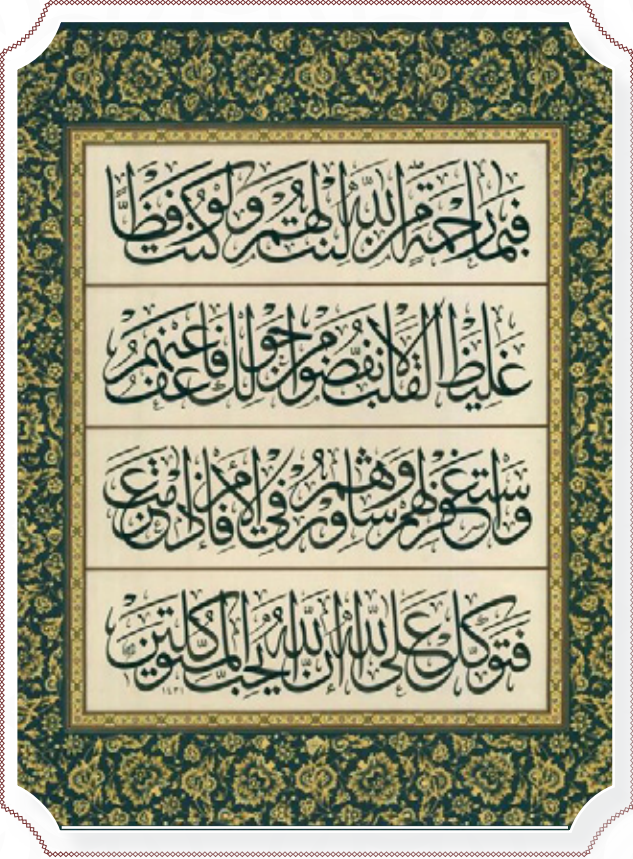 فَبِمَا رَحْمَةٍ مِنَ اللَّهِ لِنْتَ لَهُمْ وَلَوْ كُنْتَ فَظًّا
غَلِيظَ الْقَلْبِ لَانْفَضُّوا مِنْ حَوْلِكَ فَاعْفُ عَنْهُمْ
وَاسْتَغْفِرْ لَهُمْ وَشَاوِرْهُمْ فِي الْأَمْرِ فَإِذَا عَزَمْتَ
فَتَوَكَّلْ عَلَى اللَّهِ إِنَّ اللَّهَ يُحِبُّ الْمُتَوَكِّلِينَ
١٤٣١